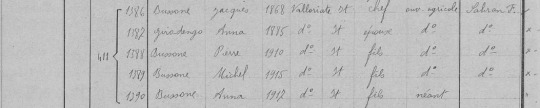 1386 Bussone Jacques 1868 Valloriate It chef ouv. agricole Sabran F.
1387 Giradengo Anna 1885 do It épouse do do
411 1388 Bussone Pierre 1910 do It fils do do
1389 Bussone Michel 1915 do It fils do do
1390 Bussone Anna 1917 do It fils néant